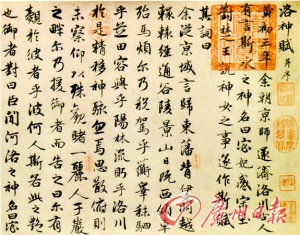 洛神賦 并序
黃初三年余朝京師還濟洛川古人
有言斯水之神名曰宓妃感宋玉
對楚王說神女之事遂作斯賦
其詞曰
余從京域言歸東藩背伊闕越
轘轅經通谷陵景山日既西傾車
殆馬煩尔乃稅駕乎蘅皋秣駟
乎芝田容與乎陽林流眄乎洛川
於是精移神駭忽焉思散俯則
未察仰以殊觀睹一麗人于巖
之畔尔乃援御者而告之曰尔有
覿於彼者乎彼何人斯若此之豔
也御者對曰臣聞河洛之神名曰宓
廣州日報